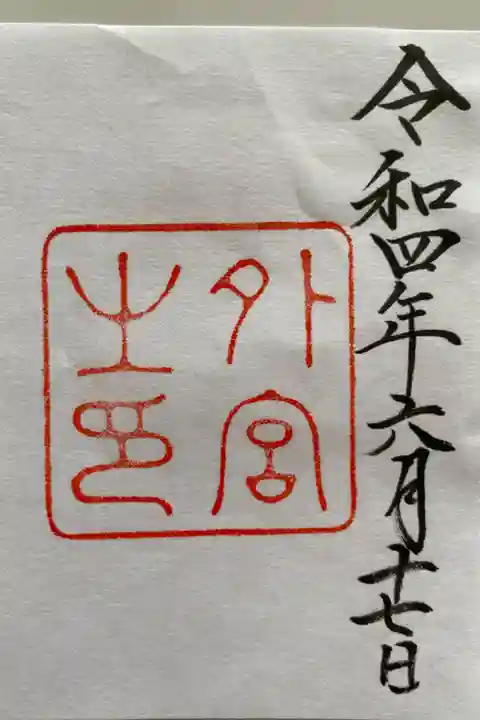 令和四年六月十七日
外宮
之印